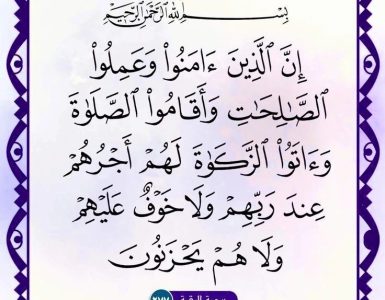 بِسْمِ اللَّهِ الرَّحْمَٰنِ الرَّحِيمِ
إِنَّ ٱلَّذِينَ ءَامَنُوا۟ وَعَمِلُوا۟
ٱلصَّـٰلِحَـٰتِ وَأَقَامُوا۟ ٱلصَّلَوٰةَ
وَءَاتَوُا۟ ٱلزَّكَوٰةَ لَهُمْ أَجْرُهُمْ
عِندَ رَبِّهِمْ وَلَا خَوْفٌ عَلَيْهِمْ
وَلَا هُمْ يَحْزَنُونَ
سورة البقرة ٢٧٧